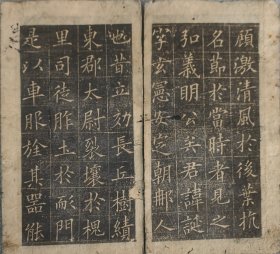 顧激清風於後葉抗
名節於當時者見之
弘義明公矣君諱誕
字玄憲安定朝那人
也昔立効長丘樹績
東郡太尉裂壤於槐
里司徒胙土於耏門
是以車服旌其器能